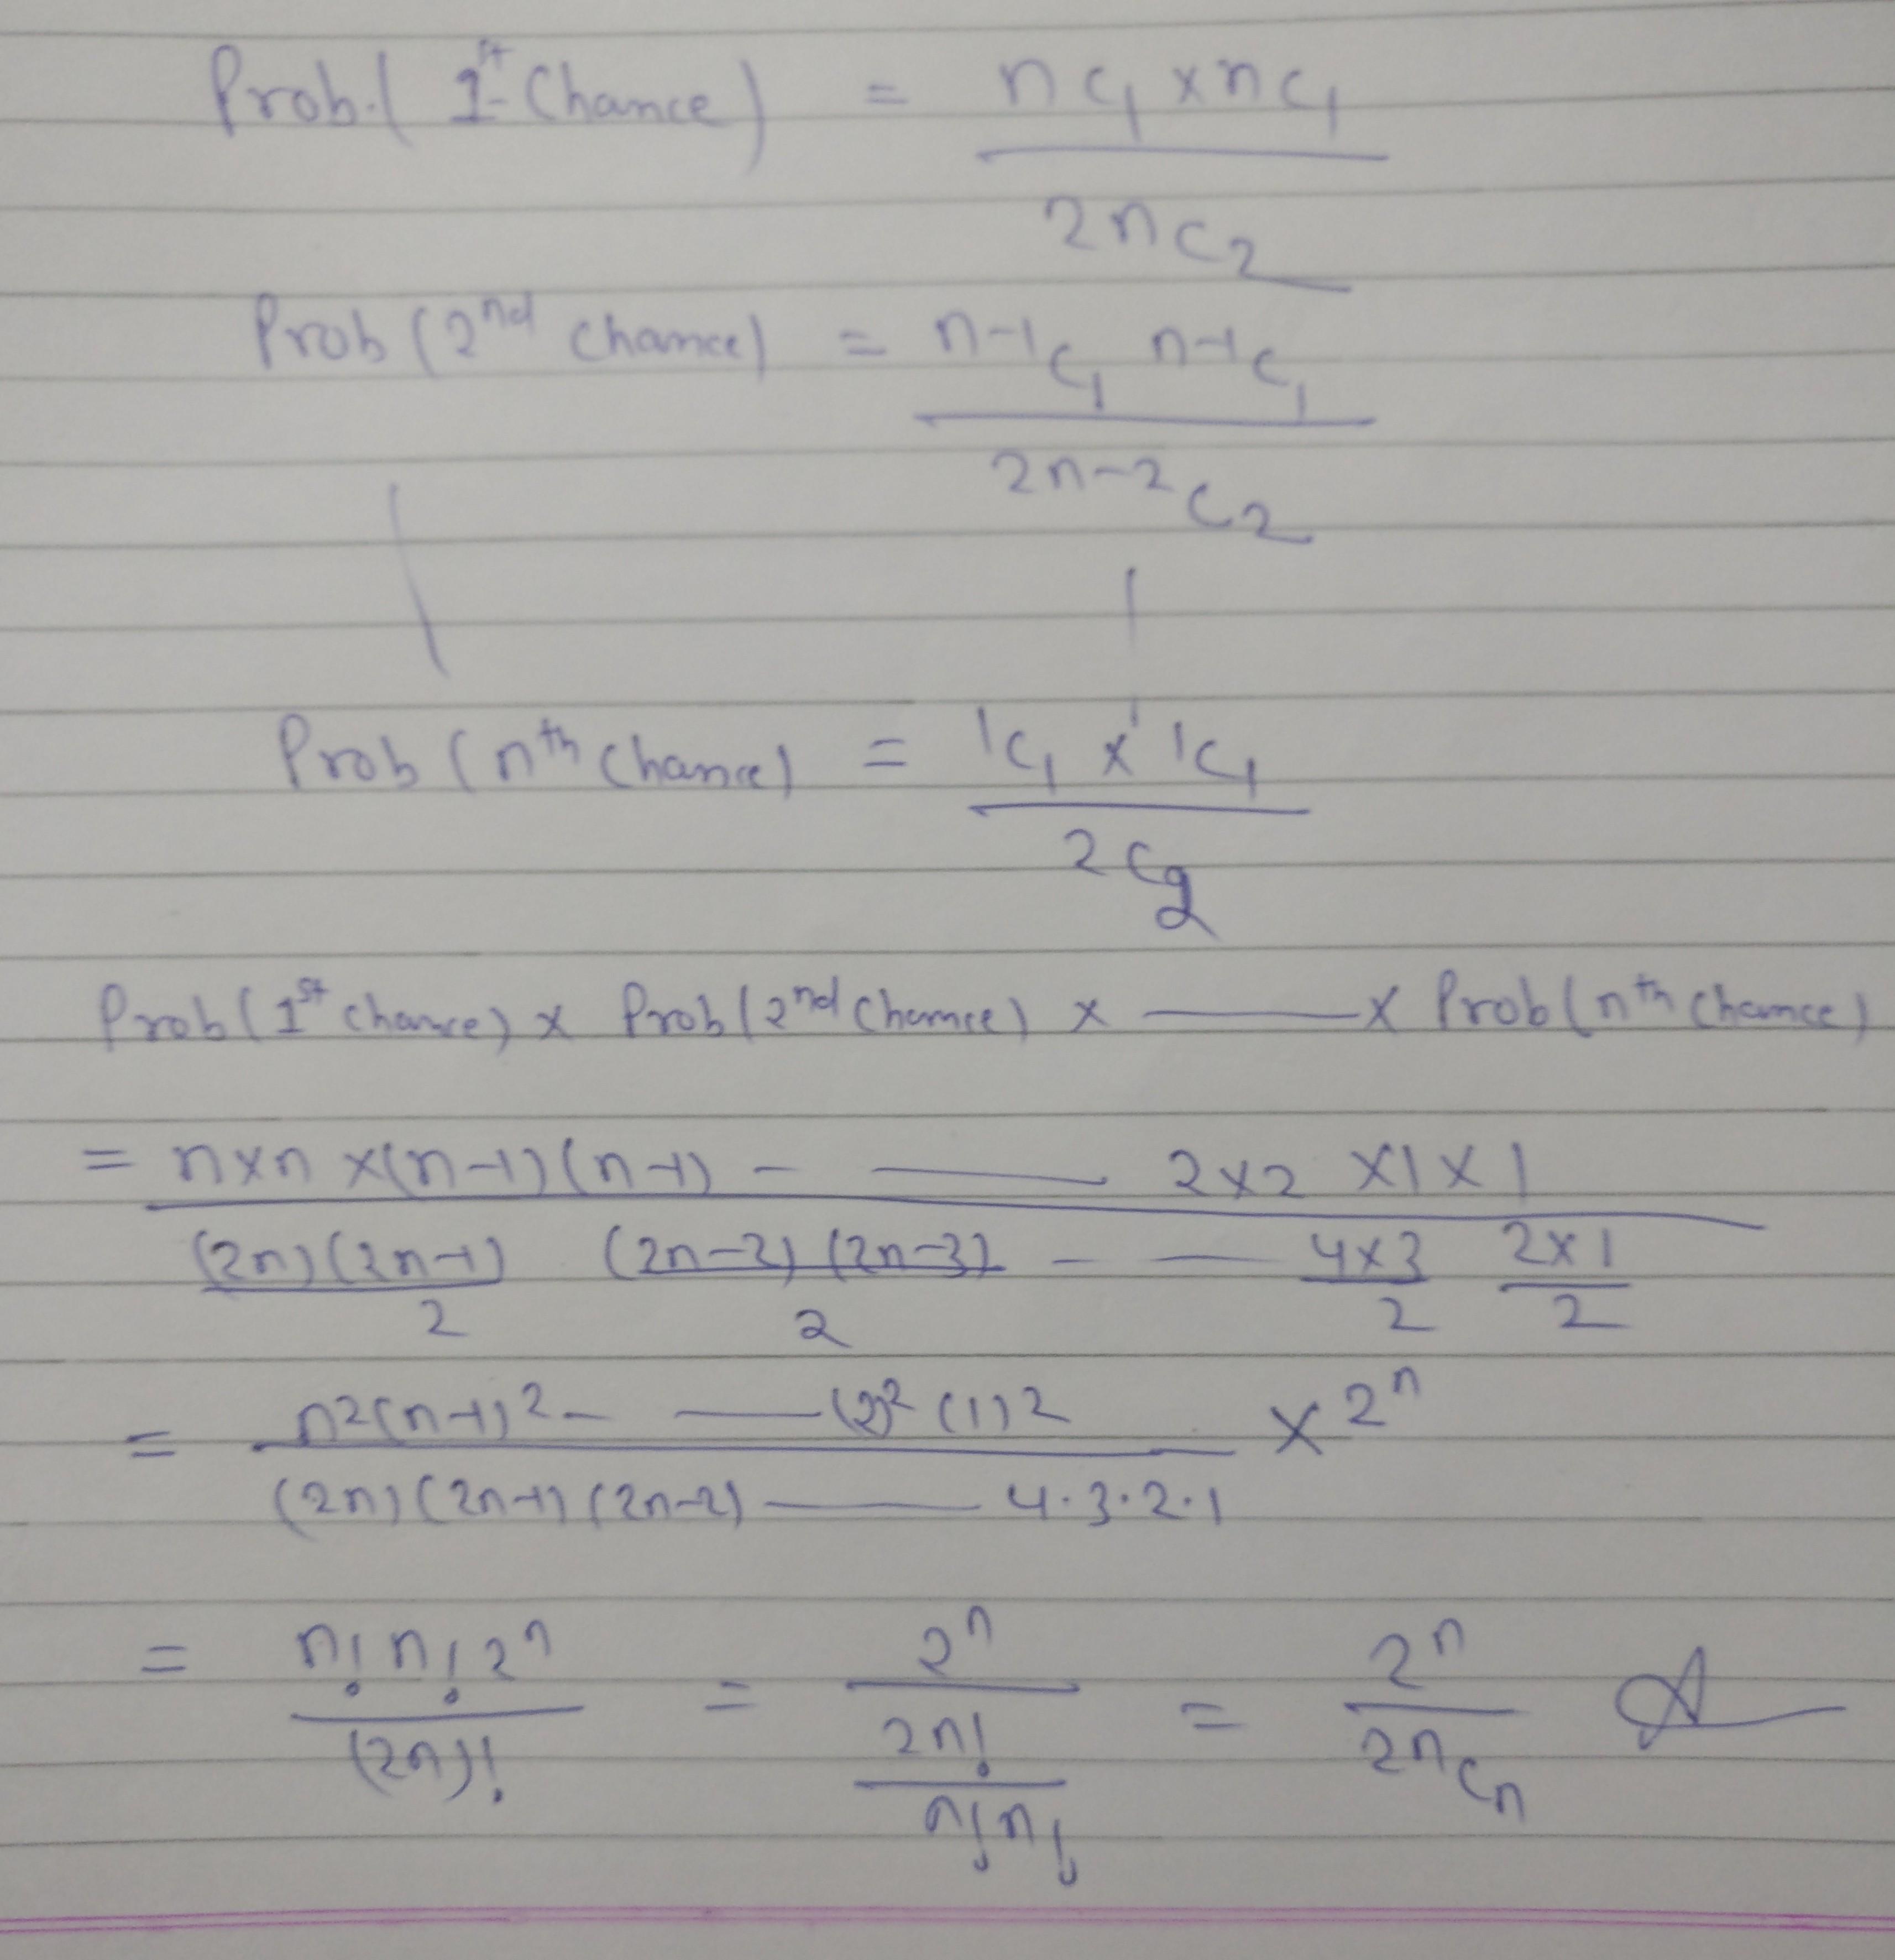 Prob.( 1st Chance) = nC1 × nC1
2nC2
Prob (2nd chance) = n-1C1 n-1C1
2n-2C2
Prob (nth chance) = 1C1 × 1C1
2C2
Prob (1st chance) × Prob (2nd chance) × —— × Prob (nth chance)
= n×n ×(n-1)(n-1) - —— 2×2 ×1×1
(2n)(2n-1) (2n-2)(2n-3) - — 4×3 2×1
2 2 2 2
= n2(n-1)2 - —— (2)2 (1)2 × 2n
(2n)(2n-1)(2n-2) —— 4·3·2·1
= n! n! 2n = 2n = 2n
(2n)! 2n! 2nCn
n! n!